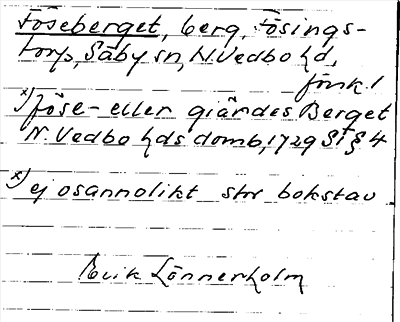 Föseberget, berg, Fösings-
torp, Säby sn, N. Vedbo hd,
förk.!
x) föse- eller giärdes Berget
N. Vedbo hds domb, 1729 § 4
x) ej osannolikt stor bokstav
Erik Lönnerholm